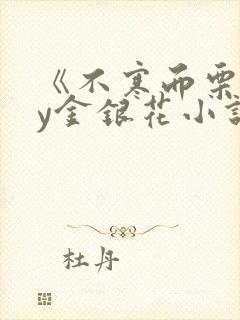 《不寒而栗
y金银花小说
杜丹